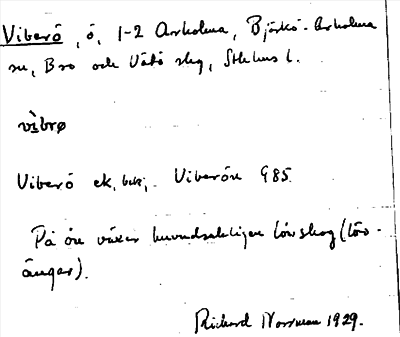 Viberö, ö, 1-2 Arholma, Björkö-Arholma
sn, Bro och Vätö skg, Sthlms l.
vibrø
Viberö ek. bek. Viberön 985
På ön växer huvudsakligen lövskog (löv-
ängar).
Richard Norrman 1929.